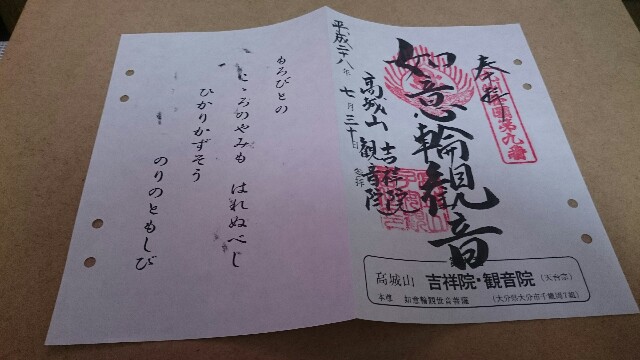 奉拝
如意輪観音
高城山 吉祥院
観音院
平成二十八年 七月三十日
高城山 吉祥院・観音院 (天台宗)
本尊 如意輪観世音菩薩
もろびとの
こゝろのやみも はれぬべし
ひかりかずそう
のりのともしび